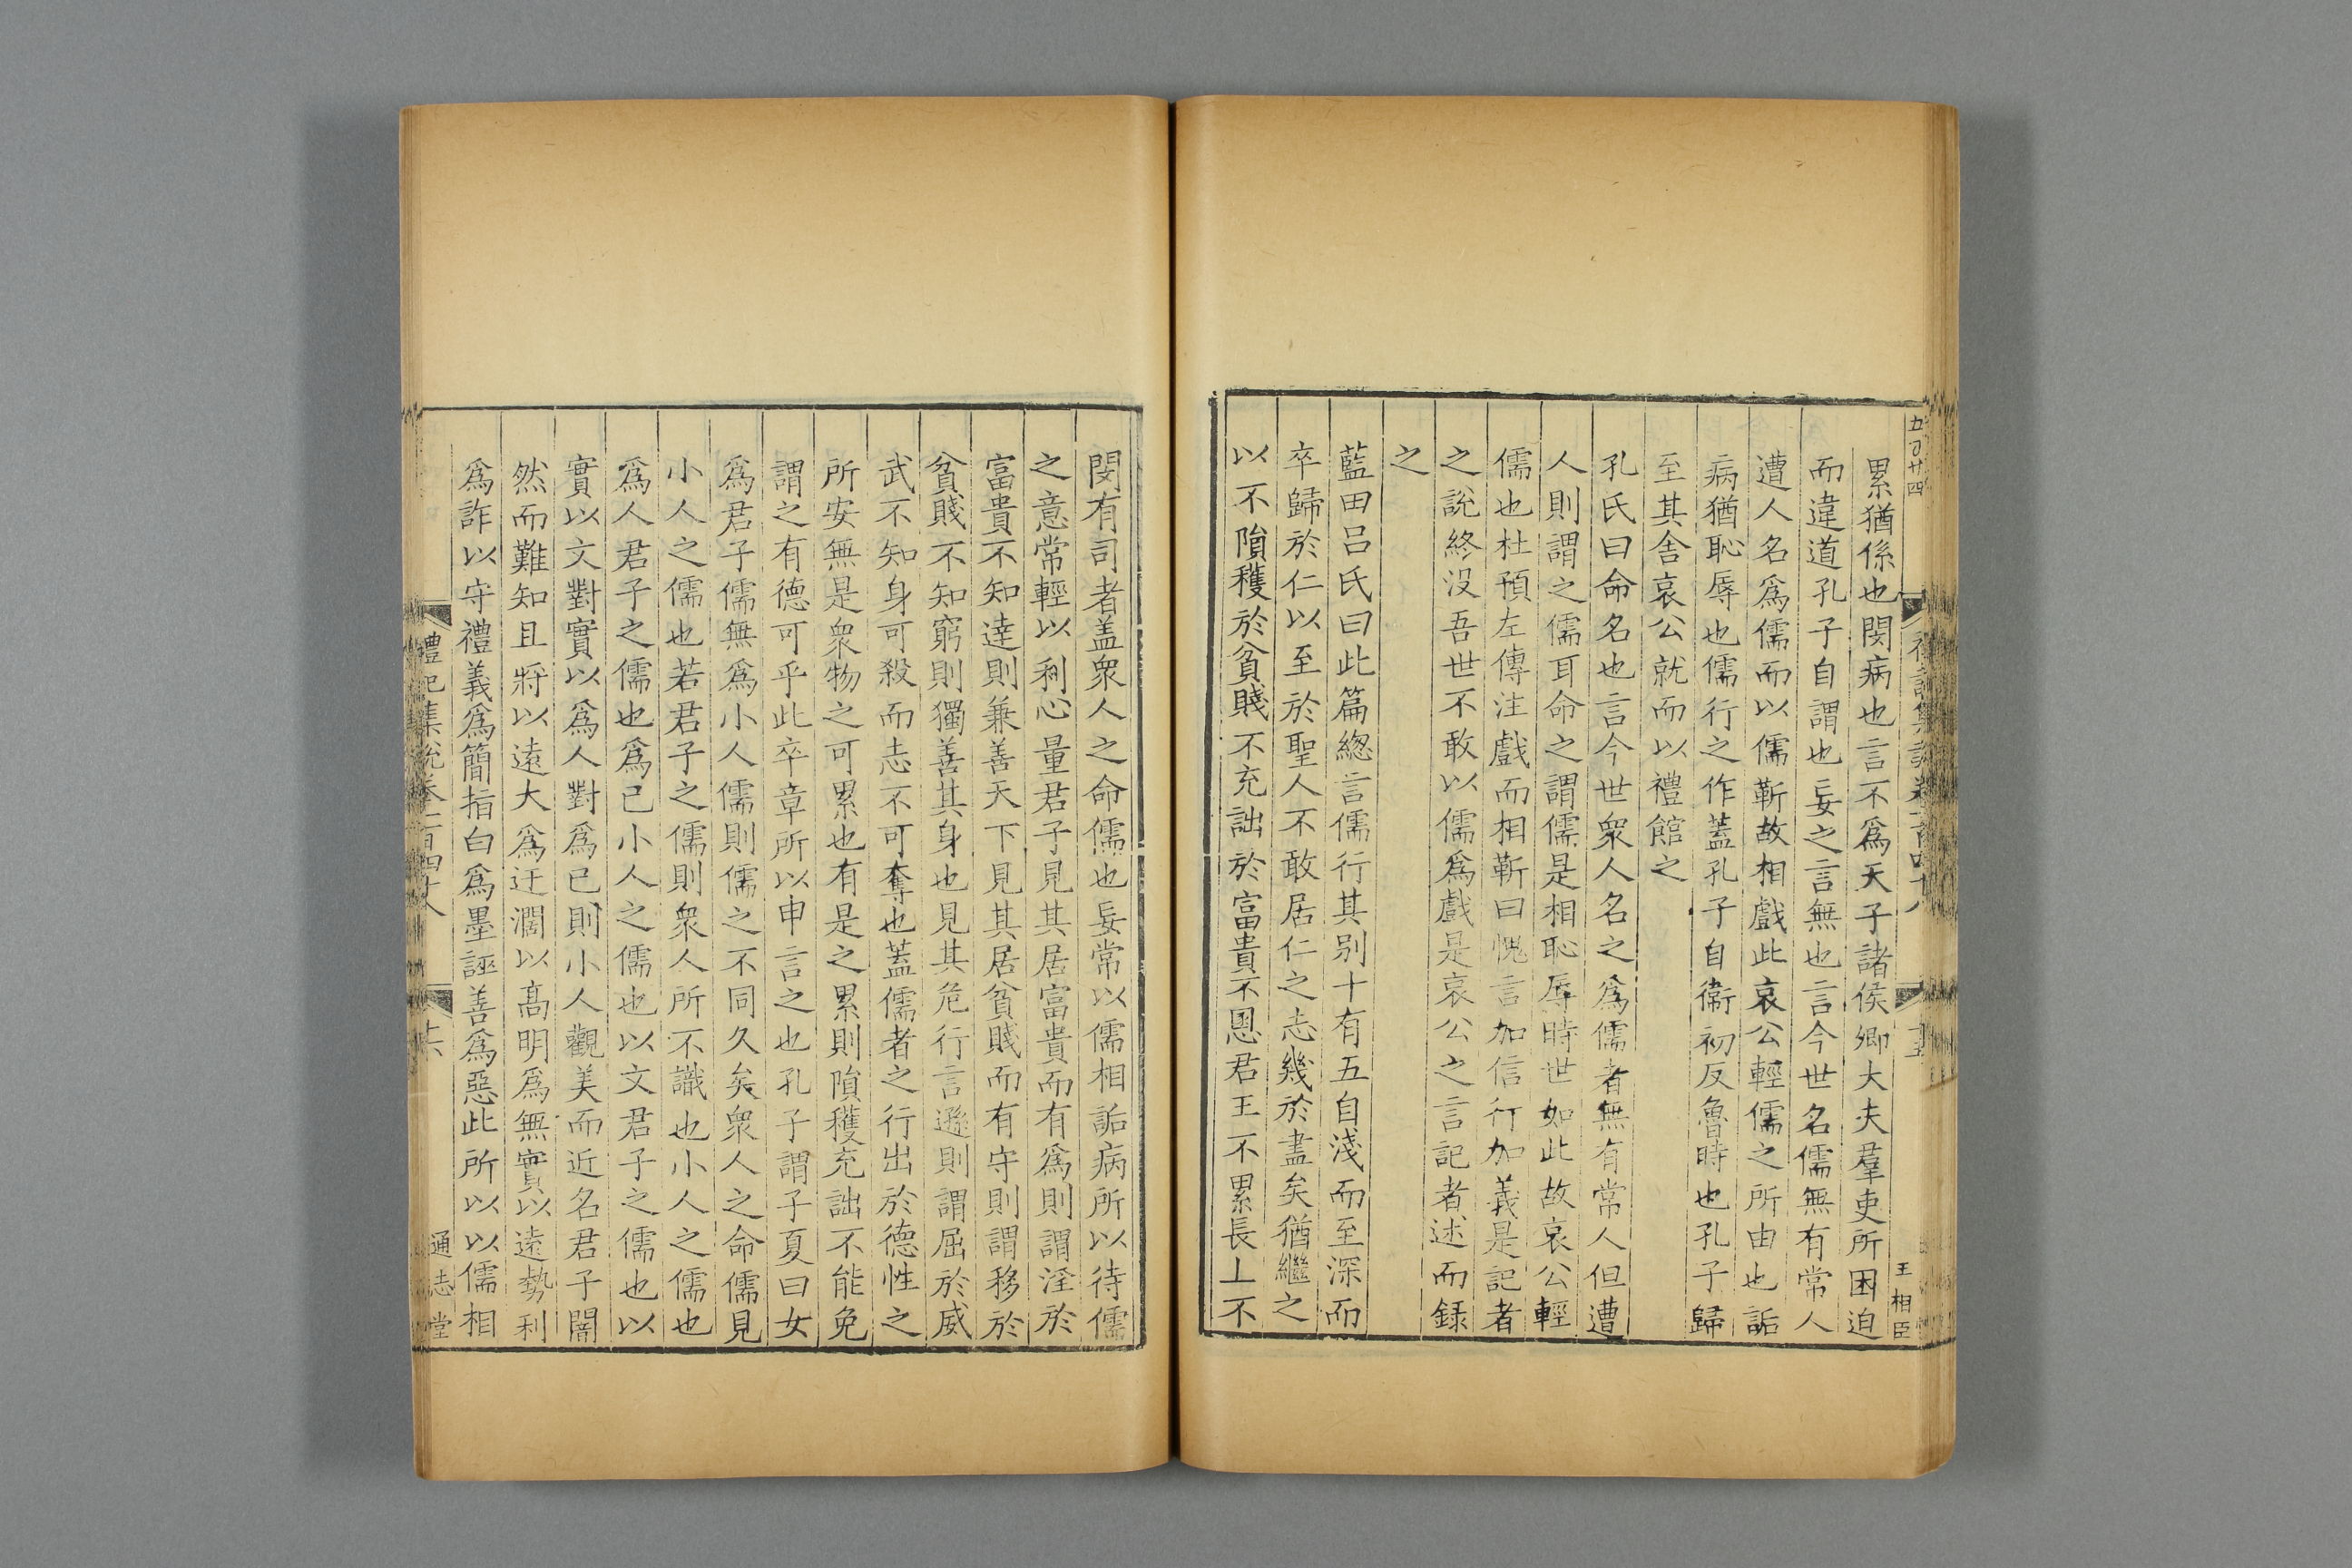 累猶係也閔病也言不爲天子諸侯卿大夫羣吏所困迫
而違道孔子自謂也妄之言無也言今世名儒無有常人
遭人名爲儒而以儒靳故相戲此哀公輕儒之所由也詬
病猶恥辱也儒行之作蓋孔子自衞初反魯時也孔子歸
至其舍哀公就而以禮館之
孔氏曰命名也言今世衆人名之爲儒者無有常人但遭
人則謂之儒耳命之謂儒是相恥辱時世如此故哀公輕
儒也杜預左傳注戲而相靳曰愧言加信行加義是記者
之說終没吾世不敢以儒爲戲是哀公之言記者述而録
之
藍田呂氏曰此篇緫言儒行其别十有五自淺而至深而
卒歸於仁以至於聖人不敢居仁之志幾於盡矣猶繼之
以不隕穫於貧賤不充詘於富貴不慁君王不累長上不
閔有司者盖衆人之命儒也妄常以儒相詬病所以待儒
之意常輕以利心量君子見其居富貴而有爲則謂淫於
富貴不知達則兼善天下見其居貧賤而有守則謂移於
貧賤不知窮則獨善其身也見其危行言遜則謂屈於威
武不知身可殺而志不可奪也蓋儒者之行出於德性之
所安無是衆物之可累也有是之累則隕穫充詘不能免
謂之有德可乎此卒章所以申言之也孔子謂子夏曰女
爲君子儒無爲小人儒則儒之不同久矣衆人之命儒見
小人之儒也若君子之儒則衆人所不識也小人之儒也
爲人君子之儒也爲己小人之儒也以文君子之儒也以
實以文對實以爲人對爲己則小人觀美而近名君子闇
然而難知且將以遠大爲迂濶以高明爲無實以遠勢利
爲詐以守禮義爲簡指白爲墨誣善爲惡此所以以儒相
禮記集說卷一百四十八
十六
通志堂
五百廿四
禮記集說卷一百四十八
十五
王相臣